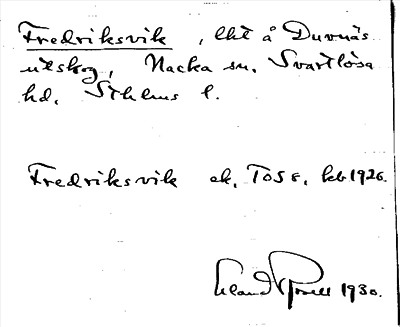 Fredriksvik, lht å Duvnäs
utskog, Nacka sn. Svartlösa
hd. Sthlms l.
Fredriksvik ek. T05 8, kb 1926.
Erland Rosell 1930.